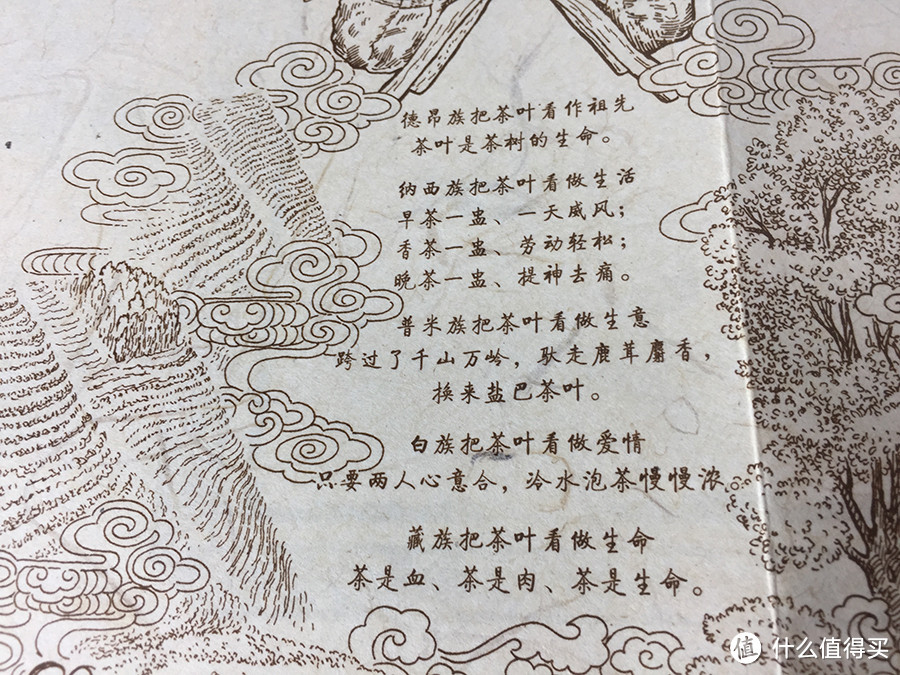 德昂族把茶叶看作祖先
茶叶是茶树的生命。
纳西族把茶叶看做生活
早茶一盅、一天威风；
香茶一盅、劳动轻松；
晚茶一盅、提神去痛。
普米族把茶叶看做生意
跨过了千山万岭，驮走鹿茸麝香，
换来盐巴茶叶。
白族把茶叶看做爱情
只要两人心意合，冷水泡茶慢慢浓。
藏族把茶叶看做生命
茶是血、茶是肉、茶是生命。
值 什么值得买